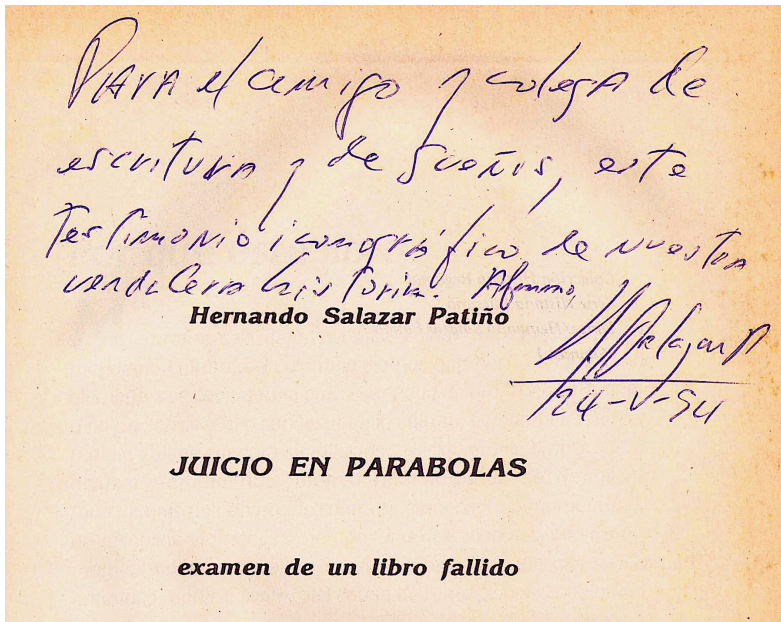 Para el amigo y colega de
escritura y de sueños, este
testimonio iconográfico de nuestra
verdadera historia. Afmmo,
Hernando Salazar Patiño
HSalazar P
24-V-94
JUICIO EN PARABOLAS
examen de un libro fallido